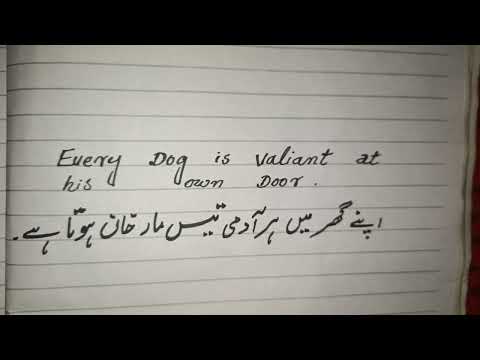 Every Dog is valiant at
his own Door.
اپنے گھر میں ہر آدمی تیس مار خان ہوتا ہے۔